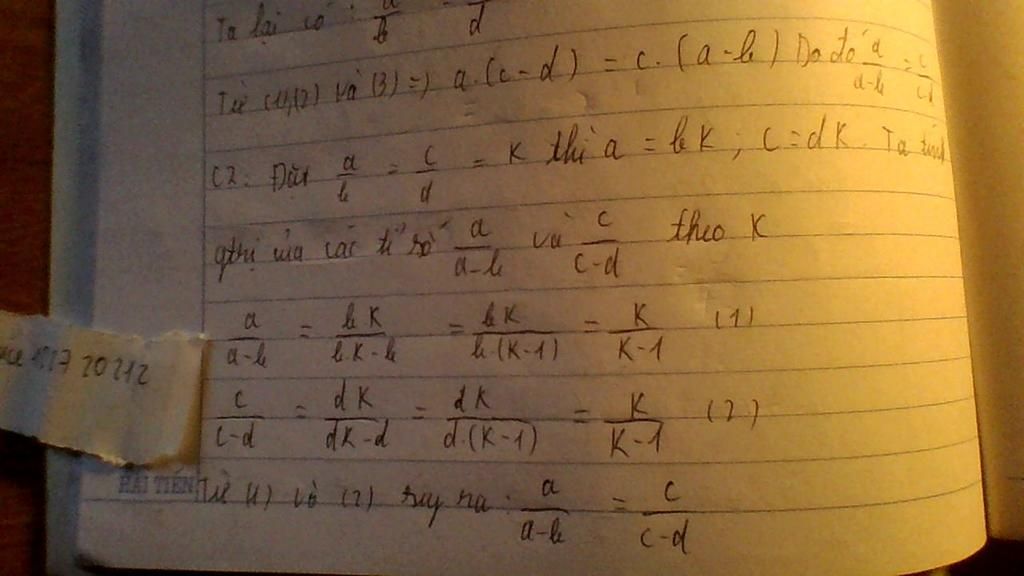 Ta lại có : a/b = /d
Từ (1),(2) và (3) =) a.(c-d) = c.(a-b) Do đó a/a-b = c/c-d
C2. Đặt a/b = c/d = K thì a = bK ; c = dK. Ta tính
gtrị của các tỉ số a/a-b và c/c-d theo K
a/a-b = bK/bK-b = bK/b.(K-1) = K/K-1 (1)
c/c-d = dK/dK-d = dK/d.(K-1) = K/K-1 (2)
20212
HẢI TIẾN
Từ (1) và (2) suy ra : a/a-b = c/c-d